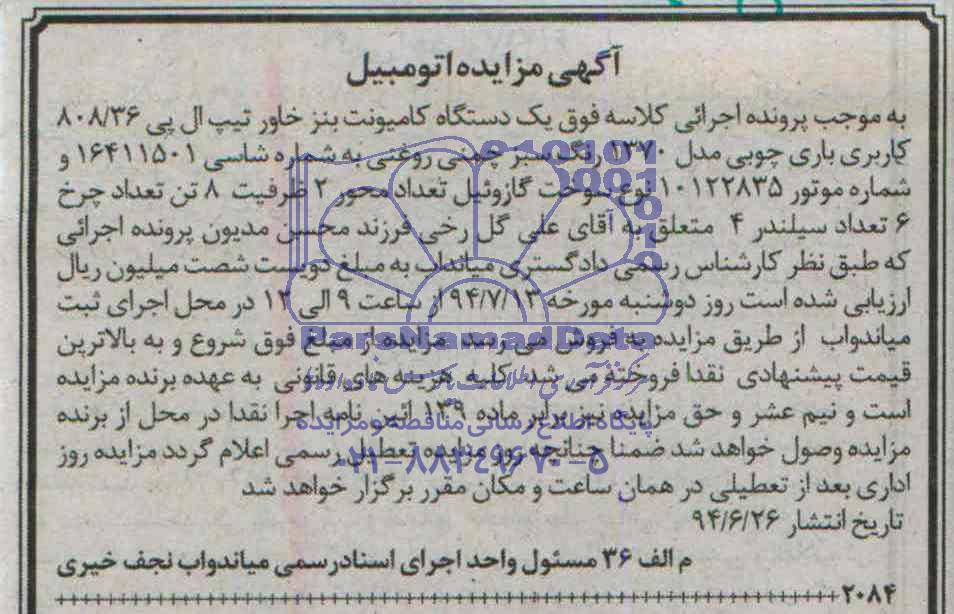 آگهی مزایده اتومبیل
به موجب پرونده اجرائی کلاسه فوق یک دستگاه کامیونت بنز خاور تیپ ال پی ۸۰۸/۳۶
کاربری باری چوبی مدل ۱۳۷۰ رنگ سبز چمنی روغنی به شماره شاسی ۱۶۴۱۱۵۰۱ و
شماره موتور ۱۰۱۲۲۸۳۵ نوع سوخت گازوئیل تعداد محور ۲ ظرفیت ۸ تن تعداد چرخ
۶ تعداد سیلندر ۴ متعلق به آقای علی گل رخی فرزند محسن مدیون پرونده اجرائی
که طبق نظر کارشناس رسمی دادگستری میانداب به مبلغ دویست شصت میلیون ریال
ارزیابی شده است روز دوشنبه مورخه ۹۴/۷/۱۳ از ساعت ۹ الی ۱۲ در محل اجرای ثبت
میاندواب از طریق مزایده به فروش می رسد مزایده از مبلغ فوق شروع و به بالاترین
قیمت پیشنهادی نقدا فروخته می شد کلیه هزینه های قانونی به عهده برنده مزایده
است و نیم عشر و حق مزایده نیز برابر ماده ۱۳۹ ائین نامه اجرا نقدا در محل از برنده
مزایده وصول خواهد شد ضمنا چنانچه روز مزایده تعطیل رسمی اعلام گردد مزایده روز
اداری بعد از تعطیلی در همان ساعت و مکان مقرر برگزار خواهد شد
تاریخ انتشار ۹۴/۶/۲۶
م الف ۳۶ مسئول واحد اجرای اسنادرسمی میاندواب نجف خیری
۲۰۸۴
ParsNamadData
پایگاه اطلاع رسانی مناقصه و مزایده
۰۲۱-۸۸۳۴۹۶۷۰-۵